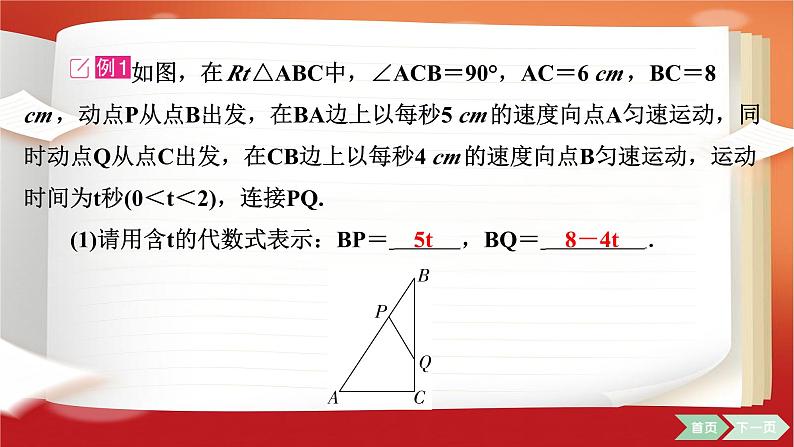 例1 如图，在Rt△ABC中，∠ACB＝90°，AC＝6 cm，BC＝8
cm，动点P从点B出发，在BA边上以每秒5 cm的速度向点A匀速运动，同
时动点Q从点C出发，在CB边上以每秒4 cm的速度向点B匀速运动，运动
时间为t秒(0＜t＜2)，连接PQ.
(1)请用含t的代数式表示：BP＝ 5t ，BQ＝ 8－4t .
B
P
Q
A
C
首页 下一页